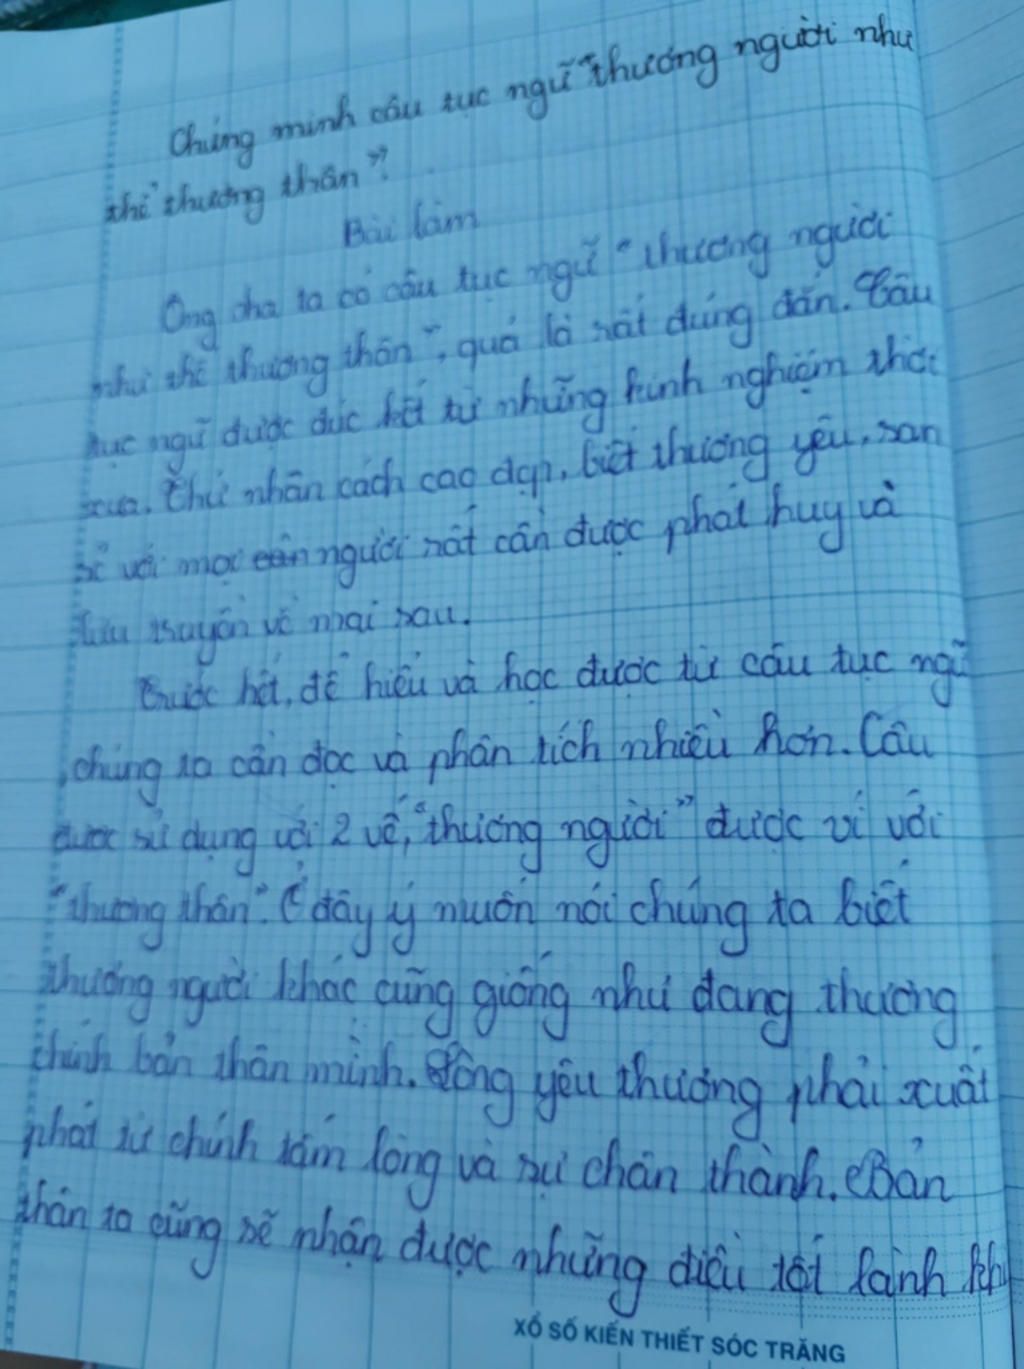 Chứng minh câu tục ngữ "thương người như
thể thương thân"?
Bài làm
Ông cha ta có câu tục ngữ "thương người
như thể thương thân", quả là rất đúng đắn. Câu
tục ngữ được đúc kết từ những kinh nghiệm thời
xưa. Thứ nhân cách cao đẹp, biết thương yêu, san
sẻ với mọi người rất cần được phát huy và
lưu truyền về mai sau.
Trước hết, để hiểu và học được từ câu tục ngữ
chúng ta cần đọc và phân tích nhiều hơn. Câu
được sử dụng với 2 vế, "thương người" được ví với
"thương thân". Ở đây ý muốn nói chúng ta biết
thương người khác cũng giống như đang thương
chính bản thân mình. Lòng yêu thương phải xuất
phát từ chính tấm lòng và sự chân thành. Bản
thân ta cũng sẽ nhận được những điều tốt lành khi
XỔ SỐ KIẾN THIẾT SÓC TRĂNG